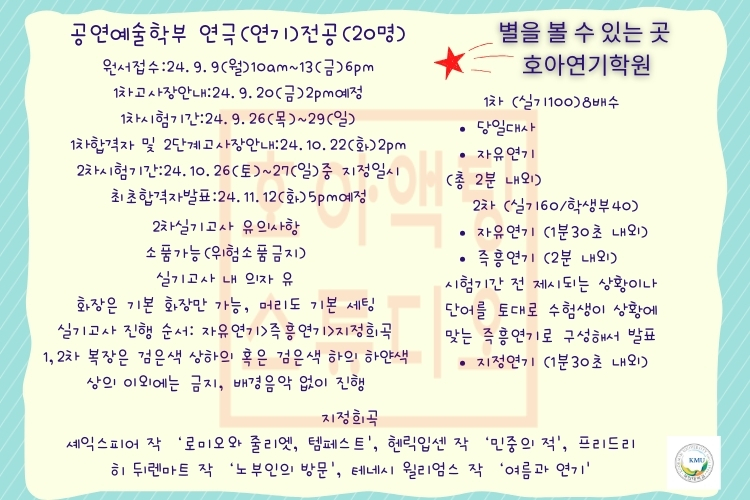 공연예술학부 연극(연기)전공(20명)
원서접수:24.9.9(월)10am~13(금)6pm
1차고사장안내:24.9.20(금)2pm예정
1차시험기간:24.9.26(목)~29(일)
1차합격자 및 2단계고사장안내:24.10.22(화)2pm
2차시험기간:24.10.26(토)~27(일)중 지정일시
최초합격자발표:24.11.12(화)5pm예정
2차실기고사 유의사항
소품가능(위험소품금지)
실기고사 내 의자 유
화장은 기본 화장만 가능, 머리도 기본 세팅
실기고사 진행 순서: 자유연기>즉흥연기>지정희곡
1,2차 복장은 검은색 상하의 혹은 검은색 하의 하얀색
상의 이외에는 금지, 배경음악 없이 진행
별을 볼 수 있는 곳
호아연기학원
1차 (실기100)8배수
• 당일대사
• 자유연기
(총 2분 내외)
2차 (실기60/학생부40)
• 자유연기 (1분30초 내외)
• 즉흥연기 (2분 내외)
시험기간 전 제시되는 상황이나
단어를 토대로 수험생이 상황에
맞는 즉흥연기로 구성해서 발표
• 지정연기 (1분30초 내외)
지정희곡
셰익스피어 작 ‘로미오와 줄리엣, 템페스트', 헨릭입센 작 ‘민중의 적', 프리드리
히 뒤렌마트 작 ‘노부인의 방문', 테네시 윌리엄스 작 ‘여름과 연기'
호아액팅
스튜디오
KMU